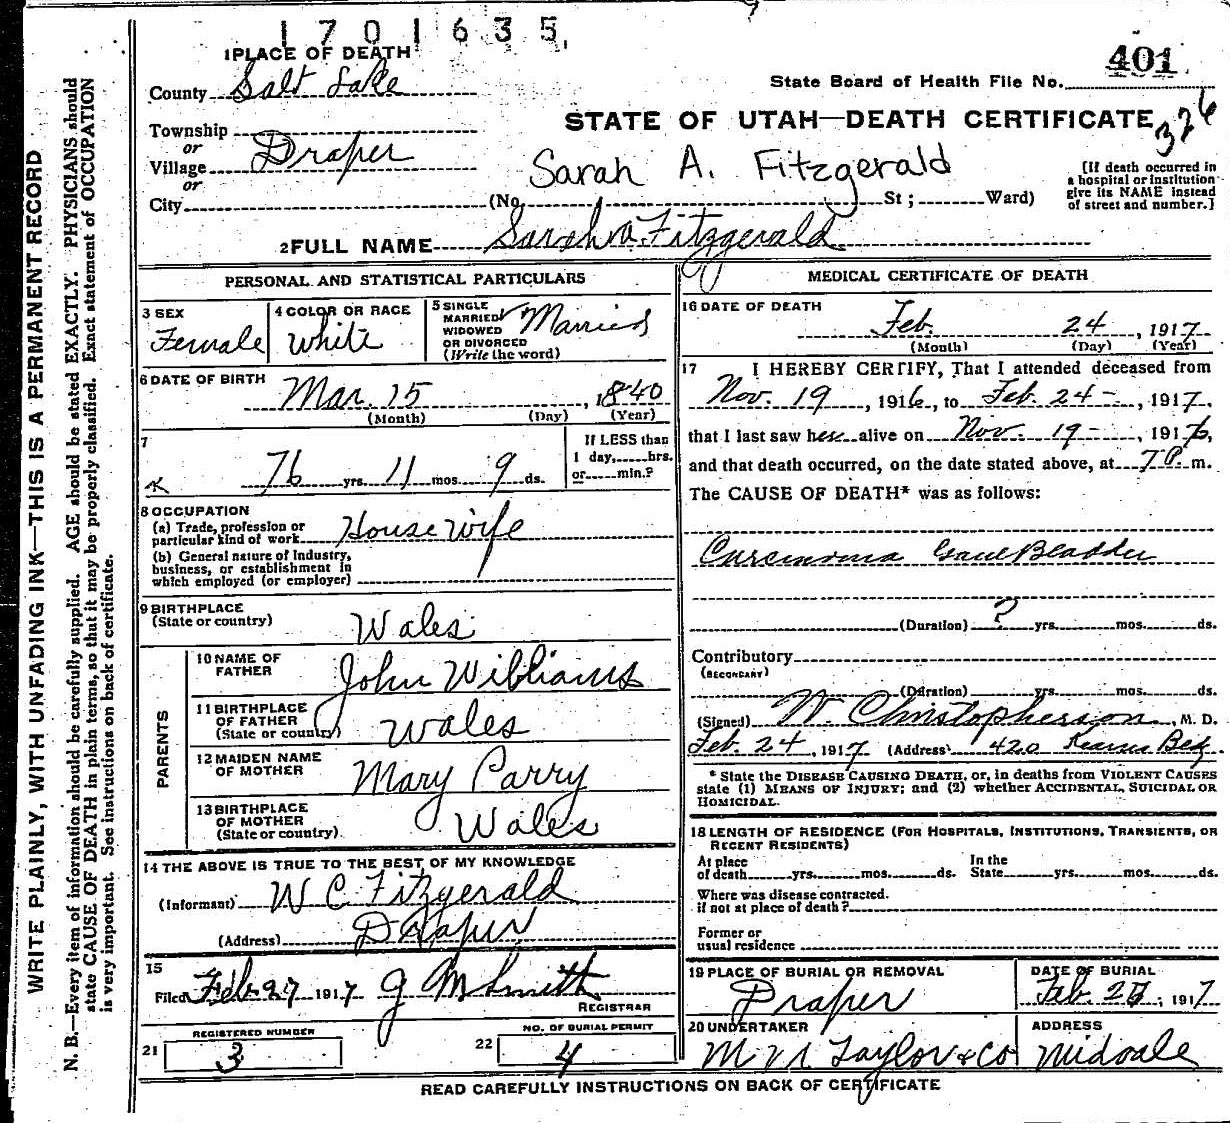 1701635
401
State Board of Health File No.
STATE OF UTAH—DEATH CERTIFICATE
326
1 PLACE OF DEATH
County Salt Lake
Township
or
Village Draper
or
City (No. St; Ward)
Sarah A. Fitzgerald
[If death occurred in
a hospital or institution
give its NAME instead
of street and number.]
2 FULL NAME Sarah A. Fitzgerald
PERSONAL AND STATISTICAL PARTICULARS
3 SEX
Female
4 COLOR OR RACE
White
5 SINGLE
MARRIED
WIDOWED
OR DIVORCED
(Write the word)
Married
6 DATE OF BIRTH
Mar. 15, 1840
(Month) (Day) (Year)
7
76 yrs. 11 mos. 9 ds.
If LESS than
1 day, hrs.
or min.?
8 OCCUPATION
(a) Trade, profession or
particular kind of work House wife
(b) General nature of Industry,
business, or establishment in
which employed (or employer)
9 BIRTHPLACE
(State or country) Wales
PARENTS
10 NAME OF
FATHER John Williams
11 BIRTHPLACE
OF FATHER
(State or country) Wales
12 MAIDEN NAME
OF MOTHER Mary Parry
13 BIRTHPLACE
OF MOTHER
(State or country) Wales
14 THE ABOVE IS TRUE TO THE BEST OF MY KNOWLEDGE
(Informant) W C Fitzgerald
(Address) Draper
15
Filed Feb 27 1917 G M Smith
REGISTRAR
REGISTERED NUMBER
21 3
NO. OF BURIAL PERMIT
22 4
MEDICAL CERTIFICATE OF DEATH
16 DATE OF DEATH
Feb. 24, 1917
(Month) (Day) (Year)
17 I HEREBY CERTIFY, That I attended deceased from
Nov. 19, 1916, to Feb. 24-, 1917,
that I last saw her alive on Nov. 19-, 1916,
and that death occurred, on the date stated above, at 7 P. m.
The CAUSE OF DEATH* was as follows:
Carcinoma Gall Bladder
(Duration) ? yrs. mos. ds.
Contributory
(SECONDARY)
(Duration) yrs. mos. ds.
(Signed) W. Christopherson, M. D.
Feb. 24, 1917 (Address) 420 Kearns Bldg.
* State the DISEASE CAUSING DEATH, or, in deaths from VIOLENT CAUSES
state (1) MEANS OF INJURY; and (2) whether ACCIDENTAL, SUICIDAL OR
HOMICIDAL.
18 LENGTH OF RESIDENCE (FOR HOSPITALS, INSTITUTIONS, TRANSIENTS, OR
RECENT RESIDENTS)
At place
of death yrs. mos. ds.
In the
State yrs. mos. ds.
Where was disease contracted.
if not at place of death?
Former or
usual residence
19 PLACE OF BURIAL OR REMOVAL
Draper
DATE OF BURIAL
Feb. 1917
20 UNDERTAKER
Taylor & Co
ADDRESS
Midvale
READ CAREFULLY INSTRUCTIONS ON BACK OF CERTIFICATE
WRITE PLAINLY, WITH UNFADING INK—THIS IS A PERMANENT RECORD
N. B.—Every item of information should be carefully supplied. AGE should be stated EXACTLY. PHYSICIANS should
state CAUSE OF DEATH in plain terms, so that it may be properly classified. Exact statement of OCCUPATION
is very important. See instructions on back of certificate.